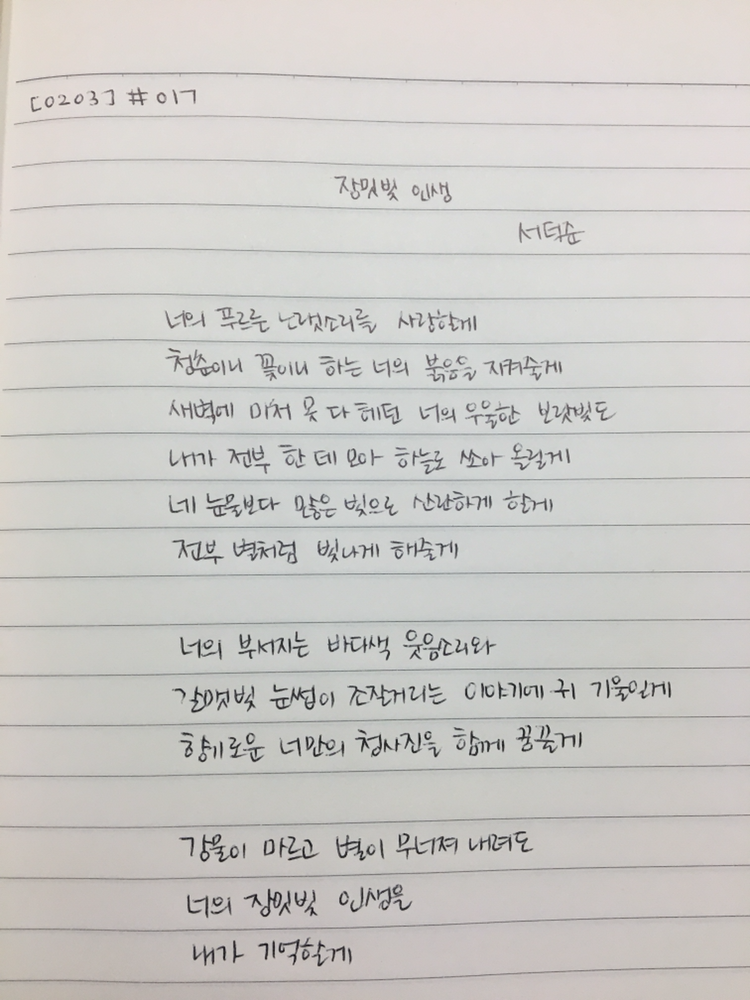 [0203] #017
장밋빛 인생
서덕준
너의 푸르른 노랫소리를 사랑할게
청춘이니 꽃이니 하는 너의 붉음을 지켜줄게
새벽에 미처 못 다 헤던 너의 우울한 보랏빛도
내가 전부 한 데 모아 하늘로 쏘아 올릴게
네 눈물보다 많은 빛으로 산란하게 할게
전부 별처럼 빛나게 해줄게
너의 부서지는 바다색 웃음소리와
갈맷빛 눈썹이 조잘거리는 이야기에 귀 기울일게
향기로운 너만의 청사진을 함께 꿈꿀게
강물이 마르고 별이 무너져 내려도
너의 장밋빛 인생을
내가 기억할게